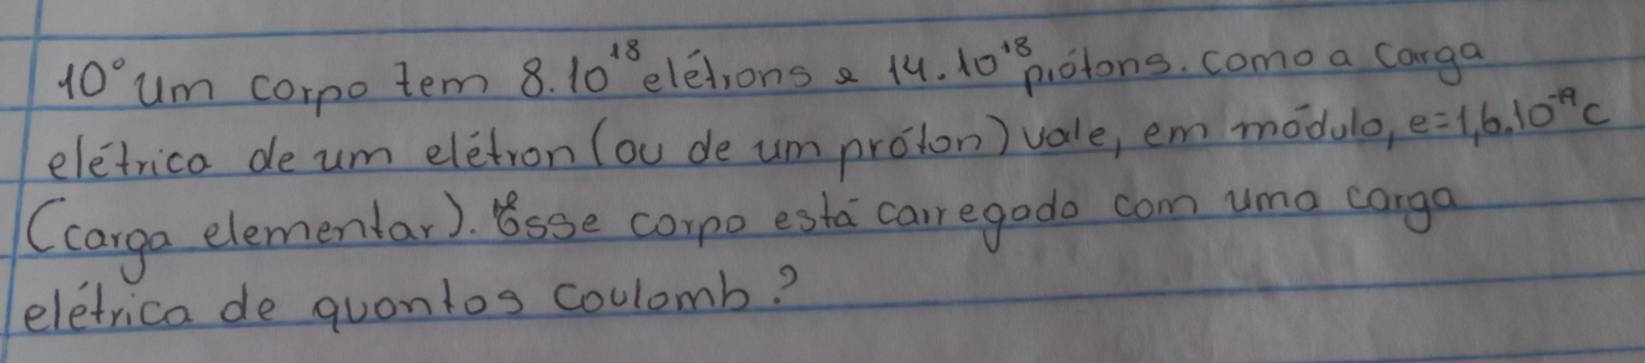 10° Um corpo tem 8.10¹⁸ elétrons e 14.10¹⁸ prótons. como a carga
elétrica de um elétron (ou de um próton) vale, em módulo, e=1,6.10⁻¹⁹C
(carga elementar). Esse corpo está carregado com uma carga
elétrica de quantos coulomb?